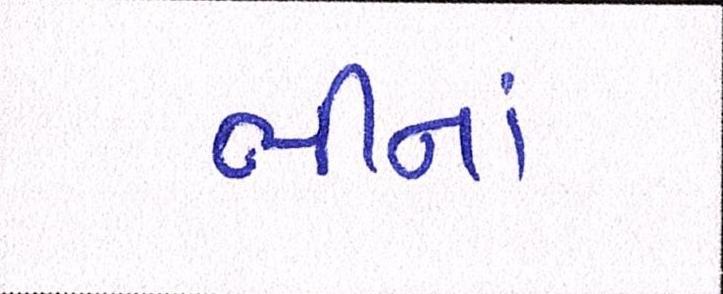 ભીનાં